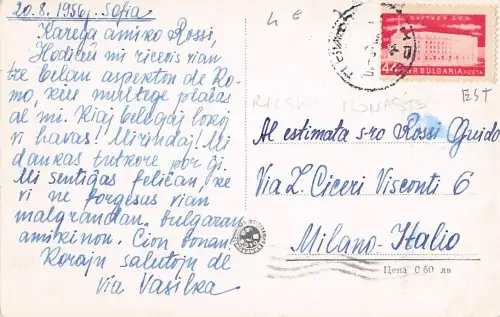 20.8.1956j. Sofia
Karega amiko Rossi,
Hodiaŭ mi ricevis vian
tre belan aspekton de Ro-
mo, kiu multege plaĉas
al mi. Kiaj belegaj lokoj
vi havas! Mirindaj! Mi
dankas tutkore por ĝi.
Mi sentiĝas feliĉan, ke
vi ne forgesus vian
malgrandan bulgaran
amikinon. Ĉion bonan.
Korajn salutojn de
via Vasilka
4 €
ПАРТИЕН ДОМ
44
НР BULGARIA ПОЩА
EST
RILSKI MONASTE
Al estimata s-ro Rossi Guido
Via L. Ciceri Visconti 6
Milano-Italio
Цена 0·60 лв